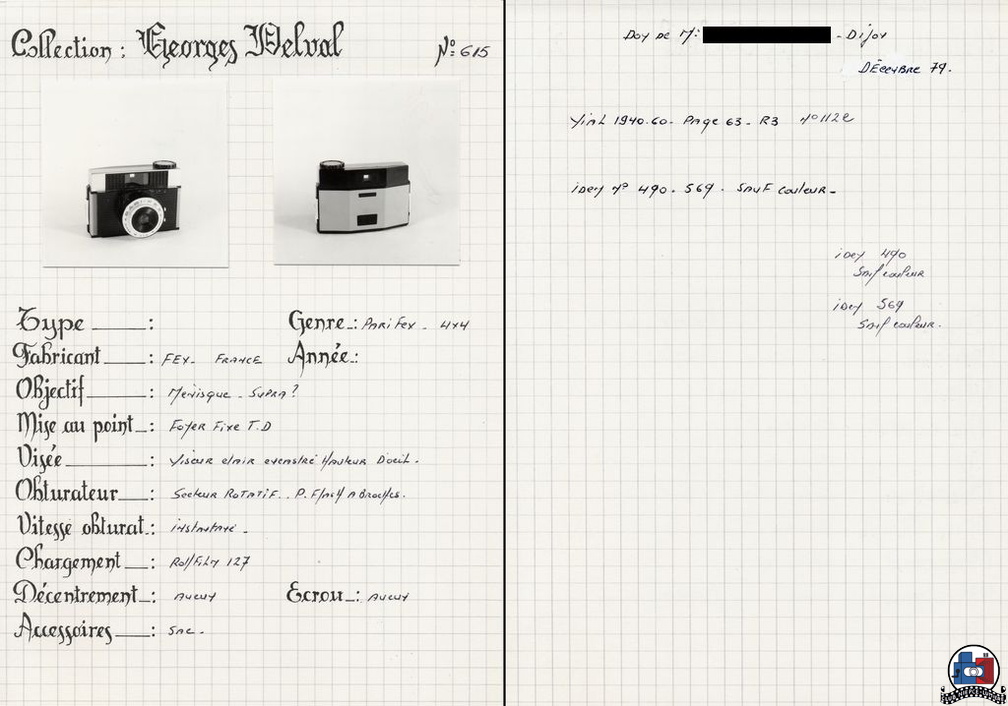 Collection : Georges Delval N° 615
Type : Genre : Parifex - 4x4
Fabricant : FEX - FRANCE Année :
Objectif : Ménisque - SUPRA ?
Mise au point : Foyer Fixe T.D
Visée : Viseur clair excentré Hauteur D'oeil.
Obturateur : Secteur Rotatif. P. Flash A Broches.
Vitesse obturat : instantané -
Chargement : RollFilm 127
Décentrement : AUCUN Ecrou : AUCUN
Accessoires : SAC -
Don de Mr - Dijon
DÉCEMBRE 79.
Vial 1940.60 - Page 63 - R3 n° 112
idem n° 490 - 569 - SAUF couleur -
idem 490
Sauf couleur
idem 569
Sauf couleur.